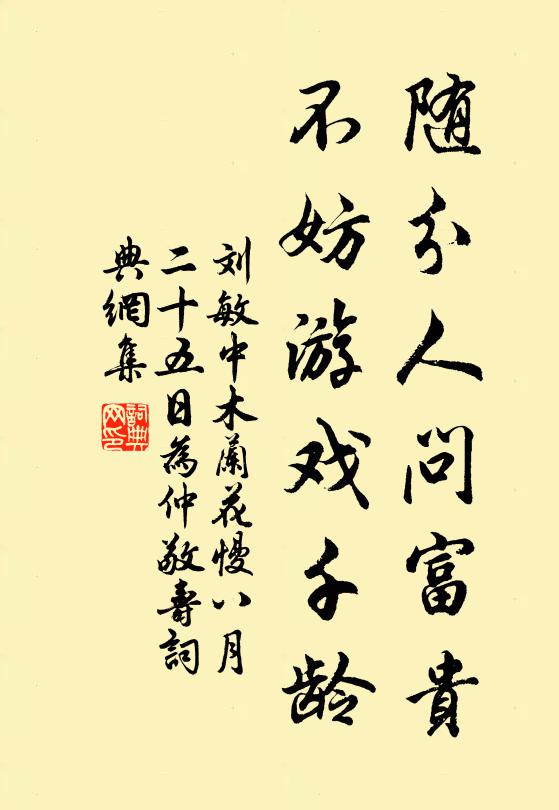 随分人问富貴
不妨游戏千龄
刘敏中木蘭花慢八月
二十五日為仲敬壽詞
典網集
詞典网印